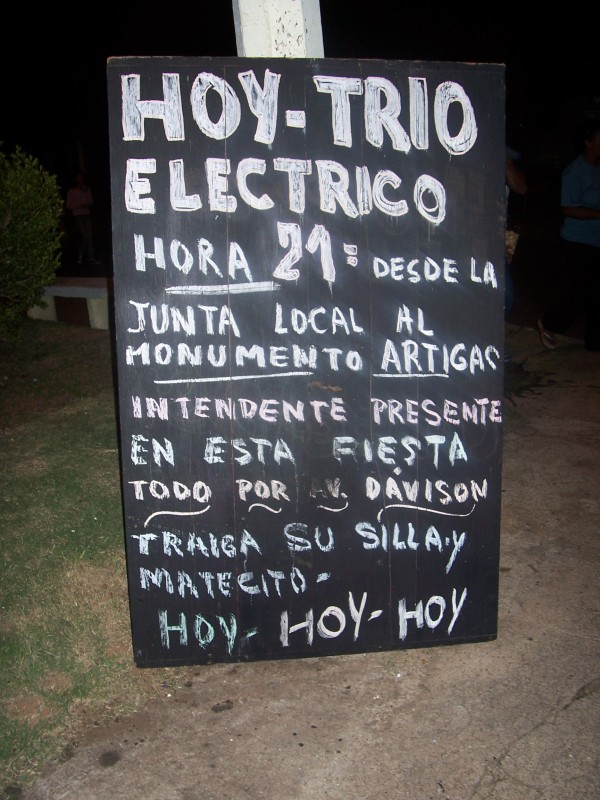 HOY-TRIO
ELECTRICO
HORA 21: DESDE LA
JUNTA LOCAL AL
MONUMENTO ARTIGAS
INTENDENTE PRESENTE
EN ESTA FIESTA
TODO POR AV. DÁVISON
TRAIGA SU SILLA-Y
MATECITO-
HOY- HOY- HOY